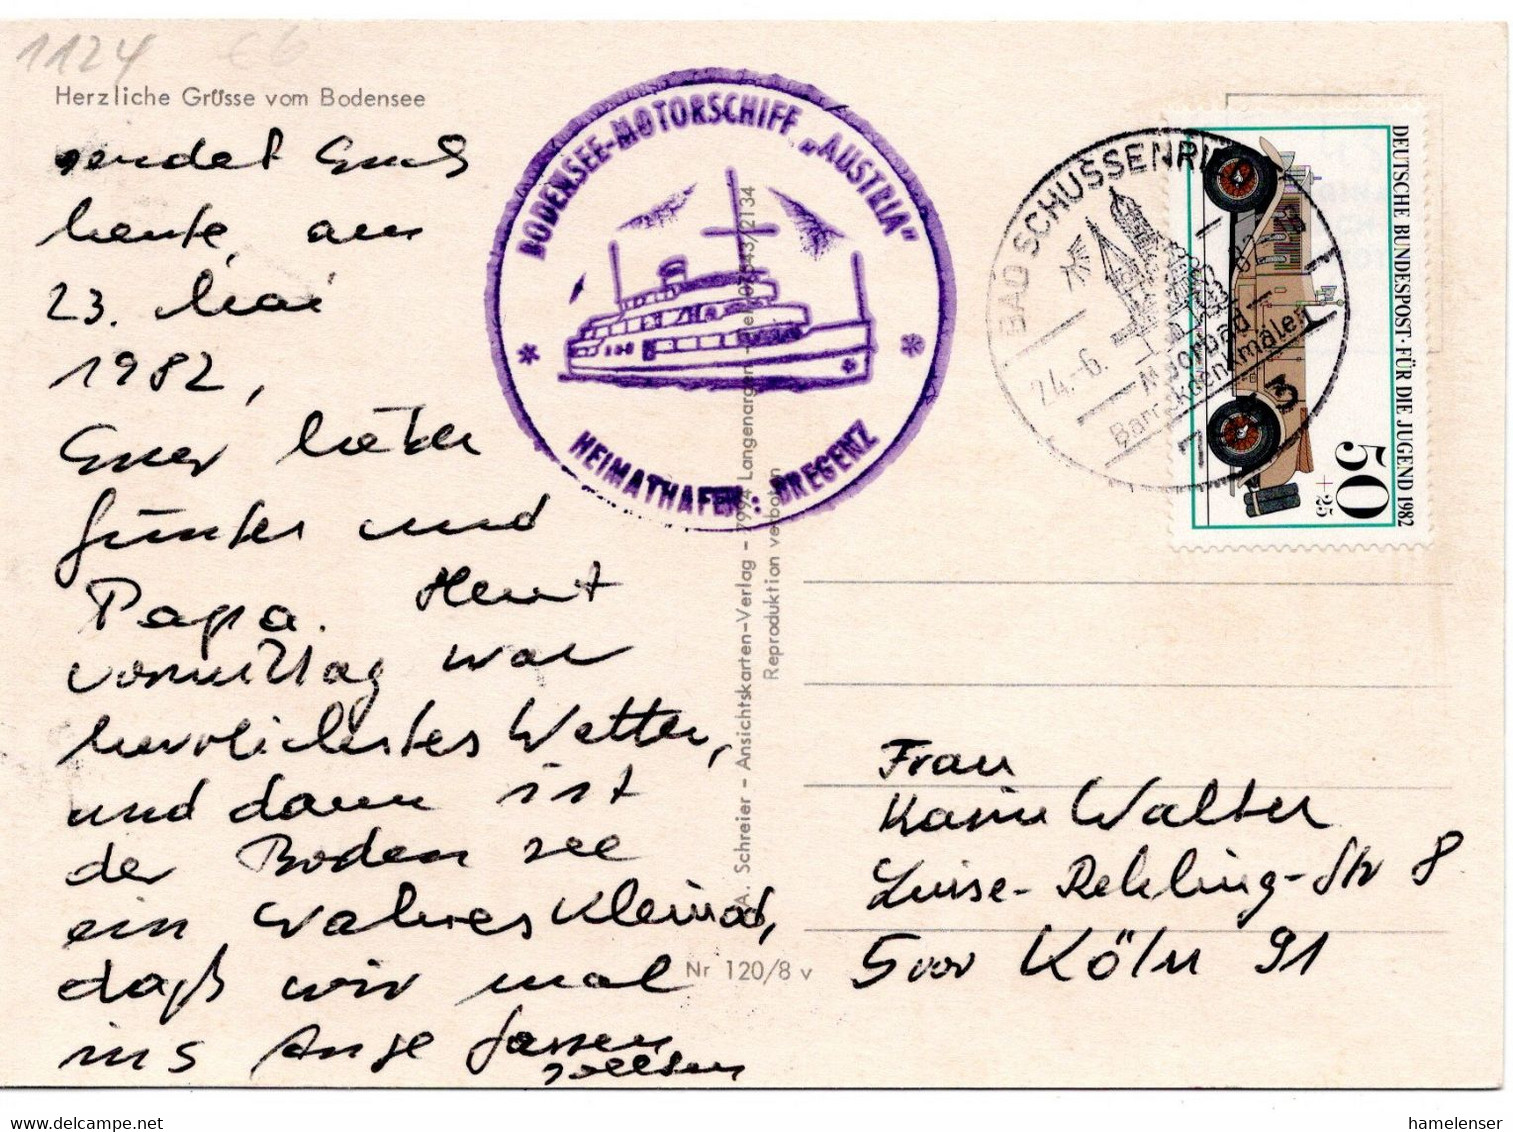 1124
Herzliche Grüsse vom Bodensee
sendet Euch
heute, am
23. Mai
1982,
Euer lieber
Günter und
Papa. Heut
vormittag war
herrlichstes Wetter,
und dann ist
der Bodensee
ein wahres Kleinod,
daß wir mal
ins Auge fassen
sollten
BODENSEE-MOTORSCHIFF „AUSTRIA"
HEIMATHAFEN: BREGENZ
A. Schreier - Ansichtskarten-Verlag - 7994 Langenargen - Tel. 07543/2134
Reproduktion verboten
Nr 120/8 v
BAD SCHUSSENRIED
24.-6. 82
Moorbad
Barockdenkmäler
DEUTSCHE BUNDESPOST · FÜR DIE JUGEND 1982
50
+25
Frau
Karin Walter
Luise-Rehling-Str 8
5000 Köln 91
www.delcampe.net
hamelenser